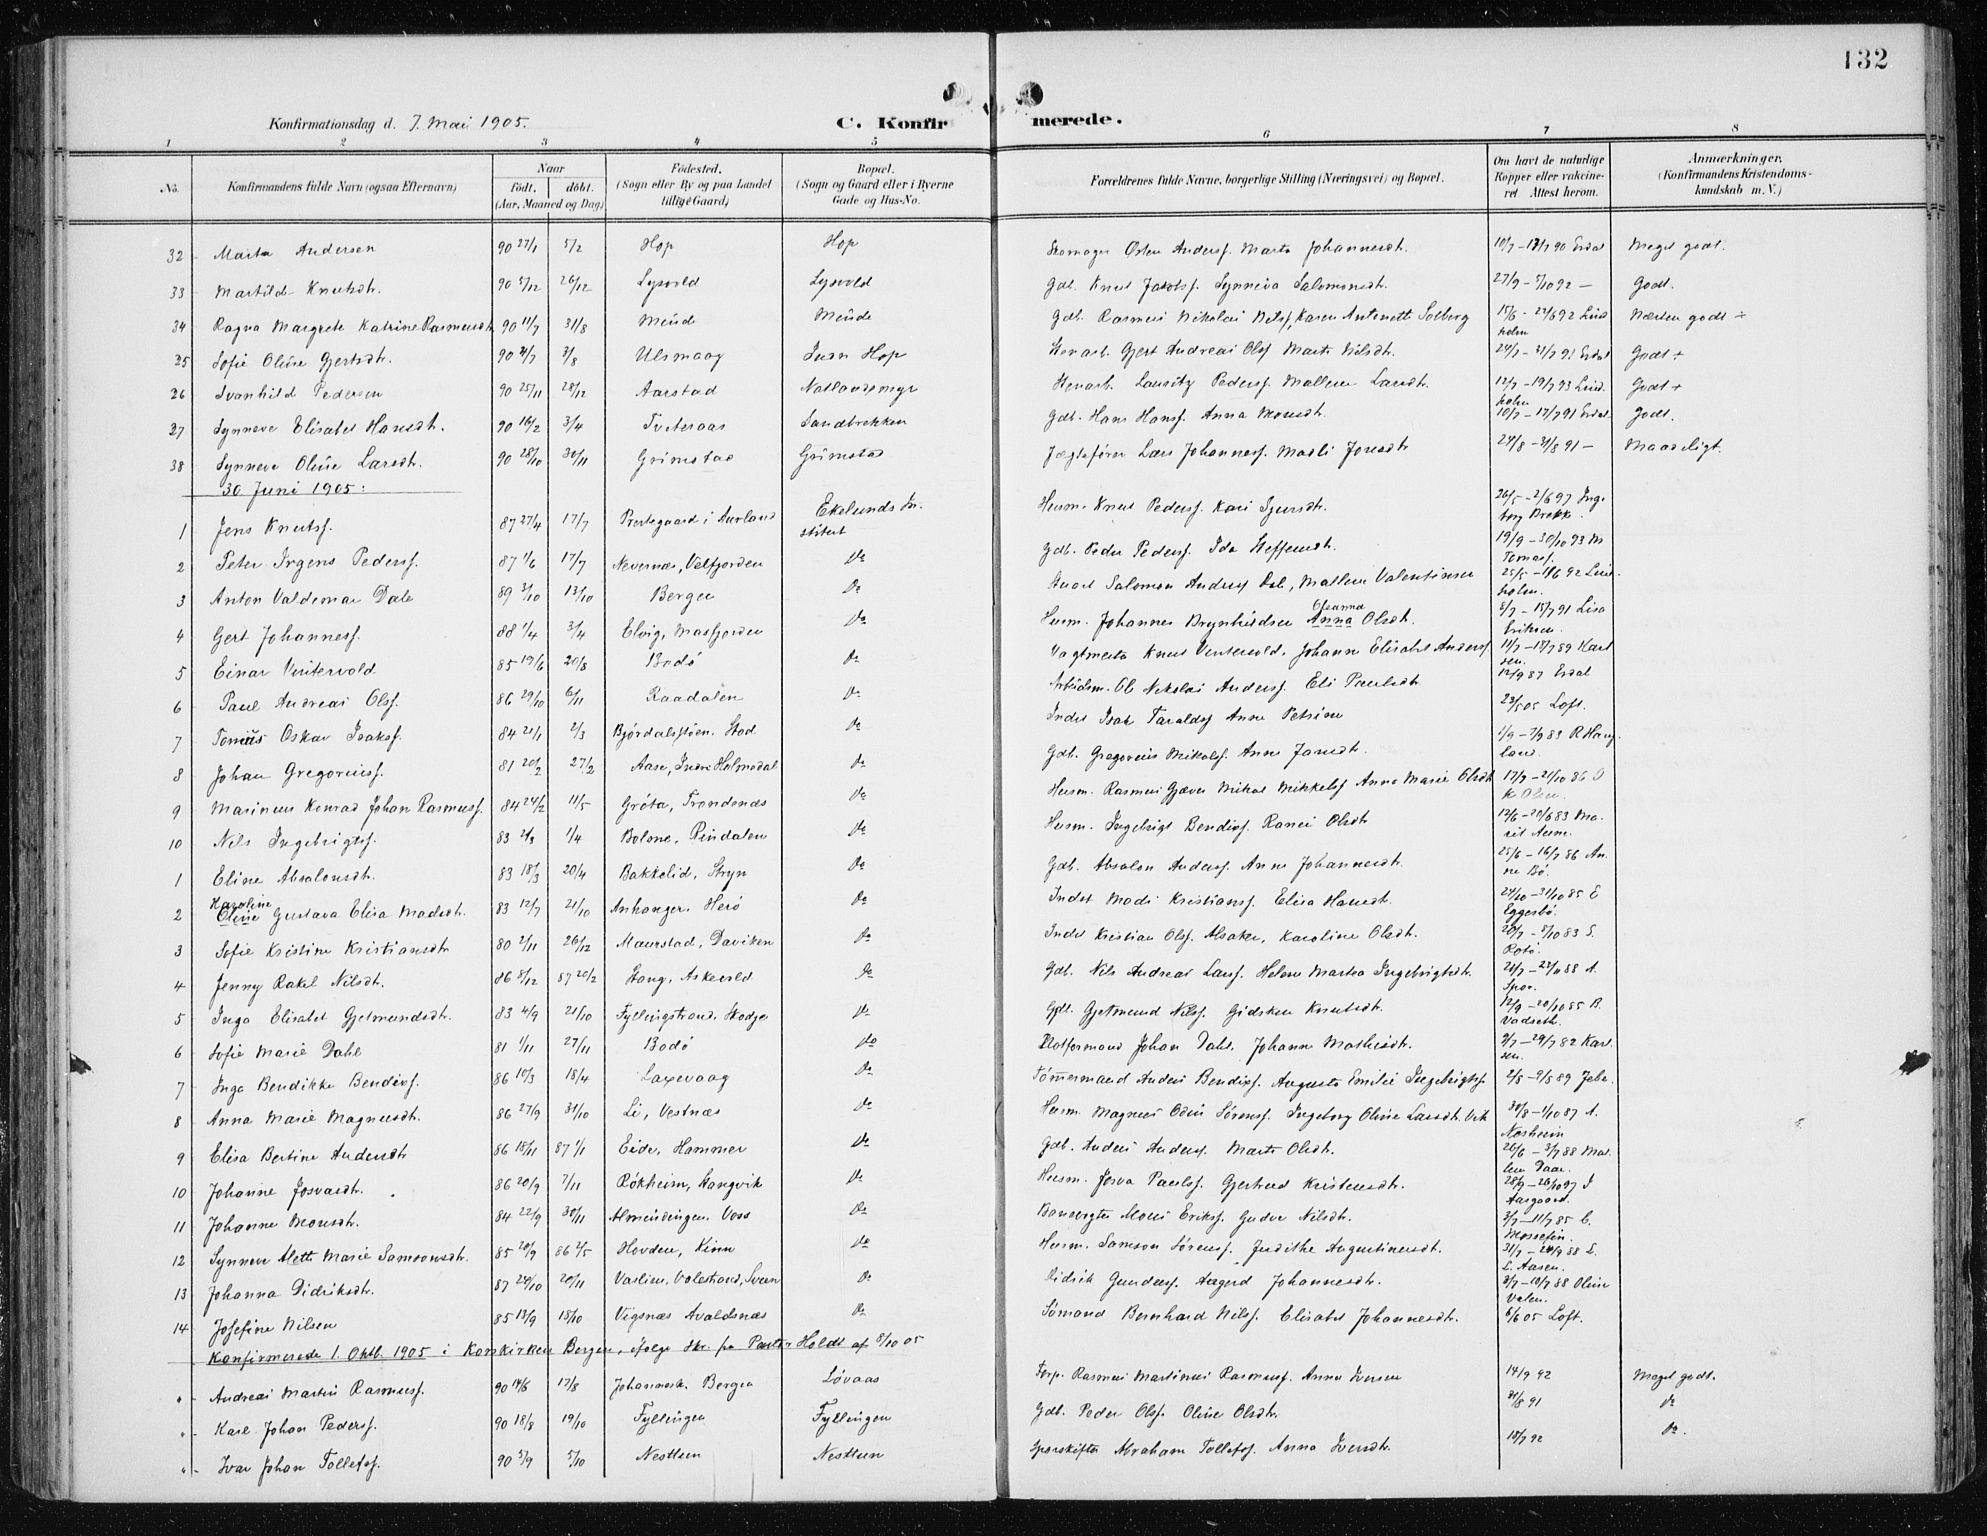 132
Konfirmationsdag d. 7. Mai 1905.
C. Konfirmerede.
1 2 3 4 5 6 7 8
No. Konfirmandens fulde Navn (ogsaa Efternavn) Naar født. døbt. (Aar, Maaned og Dag) Fødested. (Sogn eller By og paa Landet tillige Gaard) Bopæl. (Sogn og Gaard eller i Byerne Gade og Hus-No. Forældrenes fulde Navne, borgerlige Stilling (Næringsvei) og Bopæl. Om havt de naturlige Kopper eller vakcineret Attest herom. Anmærkninger. (Konfirmandens Kristendomskundskab m. V.)
32 Marta Andersen 90 27/1 5/2 Hop Hop Skomager Østen Andersf. Marta Johannesdt. 10/7 - 17/7 90 Erdal Meget godt.
33 Martild Knutsdt. 90 5/12 26/12 Lysvold Lysvold Gdb. Knut Jakobsf. Synneva Salomonsdt. 27/9 - 5/10 92 — Godt.
34 Ragna Margrete Katrine Rasmusdt. 90 11/7 31/8 Minde Minde Gdb. Rasmus Nikolai Nilsf, Karen Antonette Solberg 15/6 - 22/6 92 Lindholm Næsten godt ÷
35 Sofie Oline Gjertsdt. 90 21/7 3/8 Ulsmaag Indre Hop Stenarb. Gjert Andreas Olsf Marta Nilsdt. 24/7 - 31/7 91 Erdal Godt +
36 Svanhild Pedersen 90 25/11 28/12 Aarstad Natlandsmyr Stenarb. Lauritz Pedersf. Mallene Larsdt. 12/7 - 19/7 93 Lindholm Godt +
37 Synneve Elisabet Hansdt. 90 16/2 3/4 Tveteraas Sandbrekken Gdb. Hans Hansf. Anna Monsdt. 10/7 - 17/7 91 Erdal Godt.
38 Synneve Oline Larsdt. 90 28/10 30/11 Grimstad Grimstad Jægtefører Lars Johannesf. Madli Jonsdt. 24/8 - 31/8 91 — Maadeligt.
30 Juni 1905:
1 Jens Knutsf. 87 27/4 17/7 Prestegaard i Aurland Ekelunds Institut Husm. Knut Pedersf. Kari Sjursdt. 26/5 - 2/6 97 Ingeborg Brekk.
2 Peter Irgens Pedersf. 87 1/6 17/7 Nevernæs, Velfjorden Do Gdb. Peder Pedersf. Ida Steffensdt. 19/9 - 30/10 93 M Tomasf.
3 Anton Valdemar Dale 89 3/10 13/10 Bergen Do Salomon Andersf Dale, Mallene Valentinsen 25/5 - 1/6 92 Lindholm.
4 Gert Johannesf. 88 1/4 3/4 Elvig, Masfjorden Do Husm. Johannes Brynhildsen Oleanna Anna Olsdt. 8/7 - 15/7 91 Lisa Eriksen.
5 Einar Vintervold 85 19/6 20/8 Bodø Do Vagtmester Knut Vintervold, Johanne Elisabet Andersf 11/7 - 18/7 89 Karlsen.
6 Paul Andreas Olsf. 86 29/10 6/11 Raadalen Do Arbeidsm. Ole Nikolai Andersf. Eli Paulsdt 12/9 87 Erdal
7 Tomas Oskar Isaksf. 84 21/1 2/3 Bjørdalsstøen. Stod Do Indst Isak Taraldsf Anne Petrine 23/5 05 Loft.
8 Johan Gregoriusf. 81 20/2 27/2 Aase, Indre Holmedal Do Gdb. Gregorius Mikelsf. Anne Jansdt. 1/9 - 7/9 83 R Haugland.
9 Marinius Konrad Johan Rasmusf. 84 24/2 11/5 Grøta, Trondenæs Do Husm. Rasmus Gjæver Mikal Mikkelsf Anna Marie Olsdt 17/9 - 21/10 86 O K Olsen
10 Nils Ingebrigtsf. 83 2/3 1/4 Bolme, Rindalen Do Husm. Ingebrigt Bendixf. Ranei Olsdt 12/6 - 20/6 83 Marit Aune.
1 Eline Absalonsdt. 83 18/3 20/4 Bakkelid, Stryn Do Gdb. Absalon Andersf. Anne Johannesdt. 25/6 - 16/7 86 Anne Bø.
2 Karoline Oline Gustava Elisa Madsdt. 83 12/7 21/10 Anhanger. Herø Do Indst Mads Kristiansf. Elisa Hansdt. 24/10 - 31/10 85 E Eggesbø.
3 Sofie Kristine Kristiansdt 80 2/11 26/12 Maurstad, Daviken Do Indst Kristian Olsf. Alsaker, Karoline Olsdt. 20/7 - 8/10 83 S. Rotø.
4 Jenny Rakel Nilsdt. 86 8/12 87 20/2 Stong, Askevold Do Gdb. Nils Andreas Larsf. Helene Martea Ingebrigtsdt. 21/7 - 22/11 88 A. Spor.
5 Inga Elisabet Gjetmundsdt. 83 4/9 21/10 Fyllingstrand, Skodje Do Gdb. Gjetmund Nilsf. Gidsken Knutsdt. 12/9 - 20/10 85 B. Vadseth.
6 Sofie Marie Dahl 81 1/11 27/11 Bodø Do Platformand Johan Dahl, Johanne Mathisdt. 9/7 - 29/7 82 Karlsen.
7 Inga Bendikke Bendixf. 86 10/3 18/4 Laxevaag Do Tømmermand Anders Bendixf. Augusta Emilie Ingebrigtsf 2/8 - 9/8 89 Jebe.
8 Anna Marie Magnusdt. 86 27/9 31/10 Li, Vestnæs Do Husm Magnus Odin Sørensf. Ingeborg Oline Larsdt. Vik 30/8 - 1/10 87 A. Nesheim
9 Elisa Bertine Andersdt 86 18/11 87 1/1 Eide, Hammer Do Gdb. Anders Andersf. Marta Olsdt. 26/6 - 3/7 88 Malene Daae.
10 Johanne Josvasdt. 86 20/9 7/11 Røkheim, Stangvik Do Husm. Josva Paulsf. Gjertrud Kristensdt. 28/9 - 26/10 97 I Aasgaard.
11 Johanne Monsdt. 84 22/9 30/11 Almendingen, Voss Do Banevogter Mons Eriksf. Gudve Nilsdt. 3/7 - 11/7 85 C. Mossefin.
12 Synneve Alette Marie Samsonsdt. 85 20/9 86 2/5 Hovden, Kinn Do Husm. Samson Sørensf. Judithe Augustinusdt. 31/7 - 24/9 88 L. L. Aasen.
13 Johanna Didriksdt. 87 24/10 20/11 Vaslien, Valestrand, Sveen Do Didrik Gundersf. Aagerd Johannesdt. 3/7 - 10/7 88 Oline Valen.
14 Josefine Nilsen 85 13/9 18/10 Vigsnæs Avaldsnæs Do Sømand Bernhard Nilsf. Elisabet Johannesdt. 6/6 05 Loft.
Konfirmerede 1. Oktb. 1905 i Korskirken Bergen, ifølge Skr. fra Pastor Holdt af 8/10 05
" Andreas Martin Rasmusf. 90 14/6 17/8 Johannesk. Bergen Løvaas Forp. Rasmus Martinus Rasmusf. Anna Iversen 14/9 92 Meget godt.
" Karl Johan Pedersf. 90 18/8 19/10 Fyllingen Fyllingen Gdb. Peder Olsf. Oline Olsdt. 31/8 91 Do
" Ivar Johan Tollefsf. 90 5/9 5/10 Nesttun Nesttun Sporskifter Abraham Tollefsf. Anna Iversdt. 18/7 92 Do.